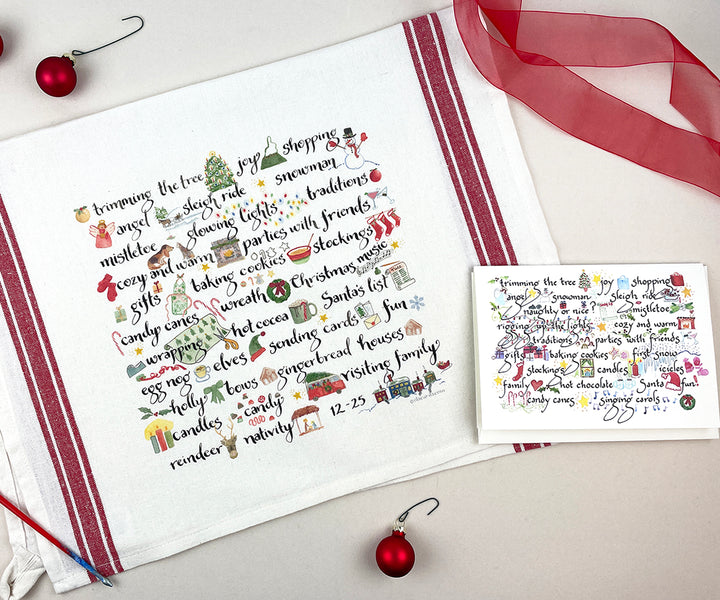 trimming the tree joy shopping
angel sleigh ride snowman
mistletoe glowing lights traditions
cozy and warm parties with friends
gifts baking cookies stockings
candy canes wreath Christmas music
wrapping hot cocoa Santa's list
egg nog elves sending cards fun
holly bows gingerbread houses
candles candy visiting family
reindeer nativity 12-25
trimming the tree joy shopping
angel snowman sleigh ride
naughty or nice mistletoe
rigging up the lights cozy and warm
traditions parties with friends
gifts baking cookies first snow
stockings candles icicles
family hot chocolate Santa fun
candy canes singing carols